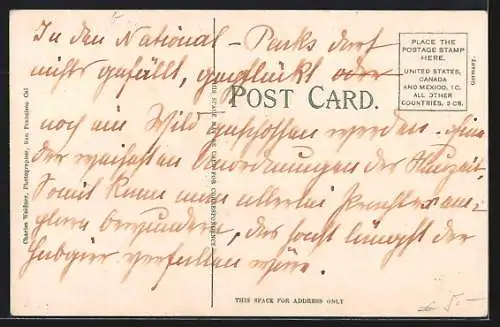 In den National-Parks darf
nichts gefällt, gepflückt oder
noch ein Wild geschossen werden. eine
der weisesten Anordnungen der Neuzeit,
Somit kann man allerlei
bewundern, das sonst längst der
Habgier verfallen wäre.
POST CARD.
PLACE THE
POSTAGE STAMP
HERE.
UNITED STATES,
CANADA
AND MEXICO, 1C.
ALL OTHER
COUNTRIES, 2 CS.
Germany.
Charles Weidner, Photographer, San Francisco Cal
THIS SPACE MAY BE USED FOR CORRESPONDENCE
THIS SPACE FOR ADDRESS ONLY